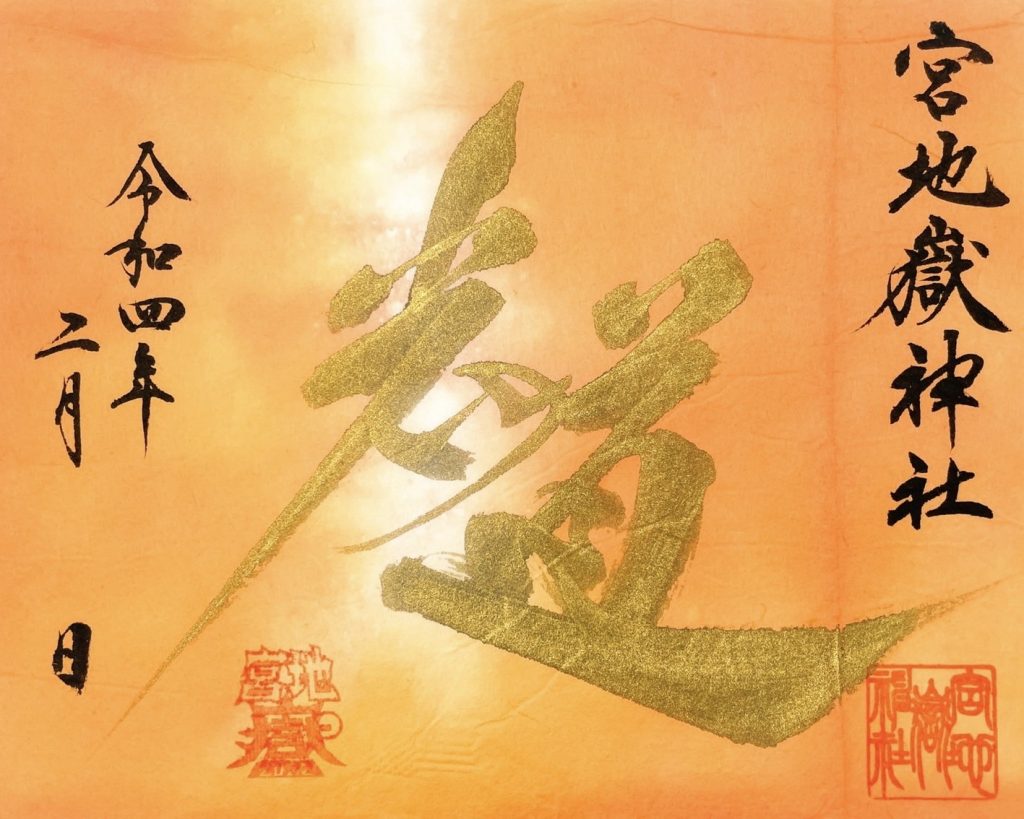 宮地嶽神社
宮地嶽神社
光の道
令和四年
二月 日
宮地嶽